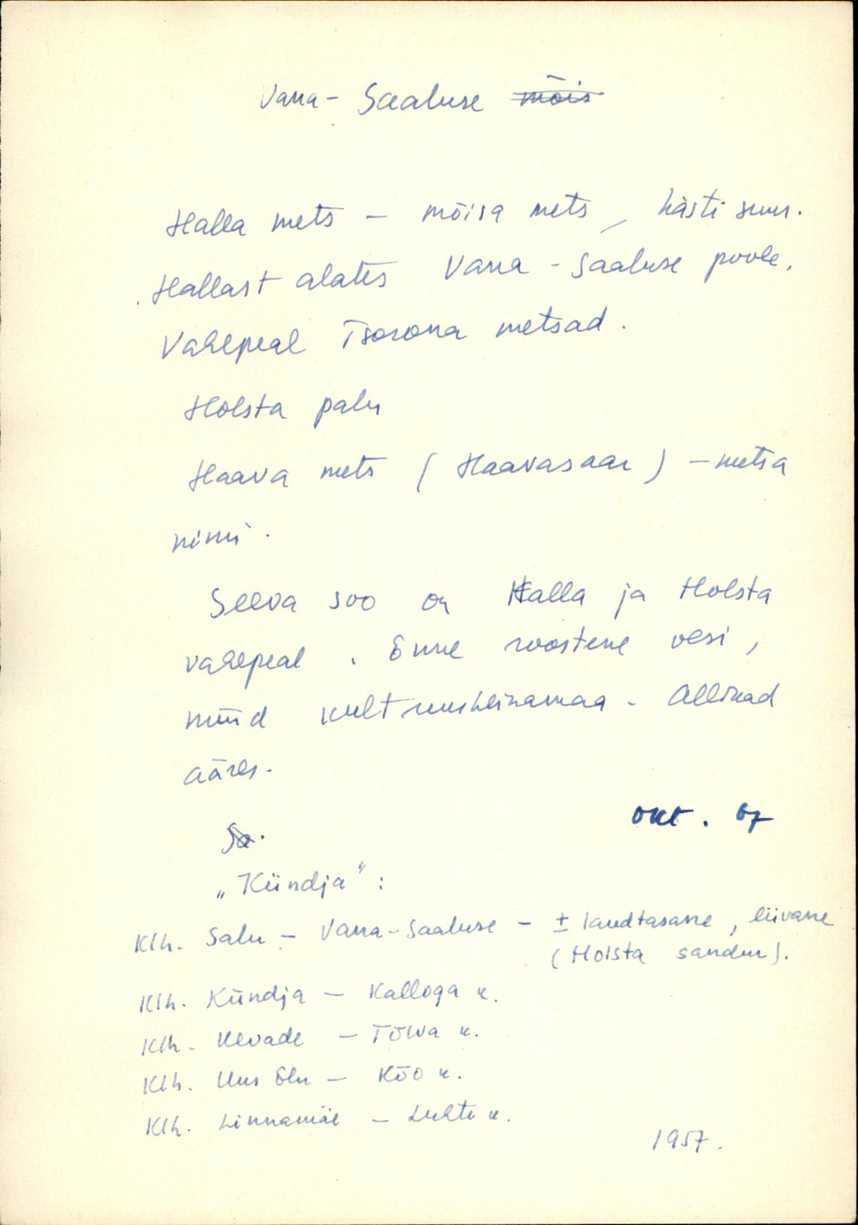 Vana-Saaluse mõis
Halla mets – mõisa mets, hästi suur.
Hallast alates Vana-Saaluse poole.
Vahepeal Tsorona metsad.
Holsta palu
Haava mets (Haavasaar) – metsa
nimi.
Seeva soo on Halla ja Holsta
vahepeal. Enne roostene vesi,
nüüd kultuurheinamaa. Allikad
ääres.
okt. 67
„Kündja":
Klh. Salu – Vana-Saaluse – ± laudtasane, liivane
(Holsta sandur).
Klh. Kündja – Kalloga k.
Klh. Kevade – k.
Klh. Uus Elu – Kõo k.
Klh. Linnamäe – Luhte k.
1957.